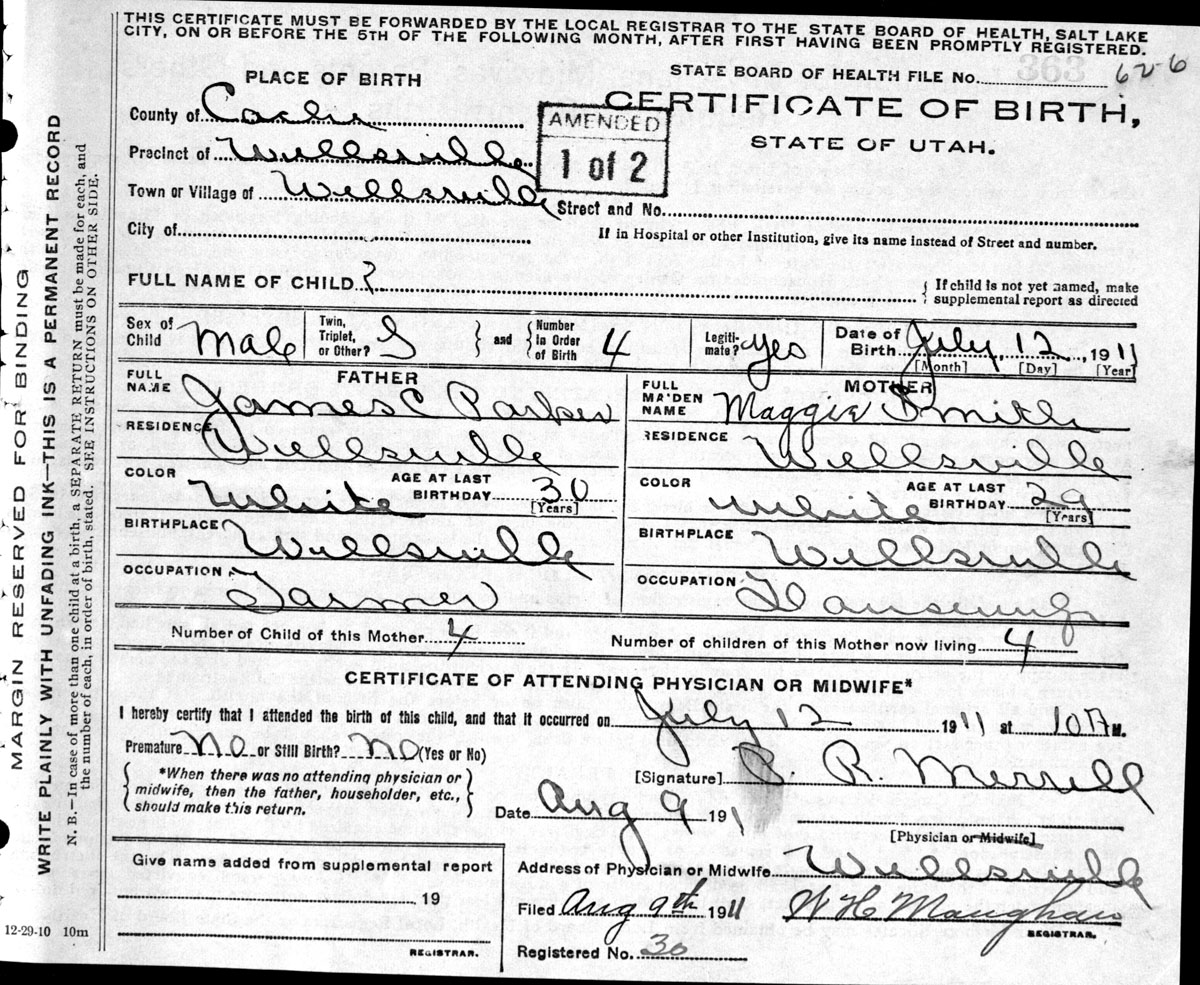 THIS CERTIFICATE MUST BE FORWARDED BY THE LOCAL REGISTRAR TO THE STATE BOARD OF HEALTH, SALT LAKE
CITY, ON OR BEFORE THE 5TH OF THE FOLLOWING MONTH, AFTER FIRST HAVING BEEN PROMPTLY REGISTERED.
PLACE OF BIRTH
STATE BOARD OF HEALTH FILE No. 62-6
County of Cache
CERTIFICATE OF BIRTH,
AMENDED
1 of 2
STATE OF UTAH.
Precinct of Wellsville
Town or Village of Wellsville
Street and No.
City of
If in Hospital or other Institution, give its name instead of Street and number.
FULL NAME OF CHILD ?
{ If child is not yet named, make
supplemental report as directed
Sex of Child Male
Twin, Triplet, or Other? S } and { Number in Order of Birth 4
Legitimate? yes
Date of Birth July 12, 1911
[Month] [Day] [Year]
FATHER
FULL NAME James C Parker
RESIDENCE Wellsville
COLOR White AGE AT LAST BIRTHDAY 30 [Years]
BIRTHPLACE Wellsville
OCCUPATION Farmer
MOTHER
FULL MAIDEN NAME Maggie Smith
RESIDENCE Wellsville
COLOR White AGE AT LAST BIRTHDAY 29 [Years]
BIRTHPLACE Wellsville
OCCUPATION
Number of Child of this Mother 4
Number of children of this Mother now living 4
CERTIFICATE OF ATTENDING PHYSICIAN OR MIDWIFE*
I hereby certify that I attended the birth of this child, and that it occurred on July 12 1911 at 10 A M.
Premature No or Still Birth? No (Yes or No)
{ *When there was no attending physician or
midwife, then the father, householder, etc.,
should make this return. }
[Signature] R. Merrill
Date Aug 9 191
[Physician or Midwife]
Give name added from supplemental report
19
REGISTRAR.
Address of Physician or Midwife Wellsville
Filed Aug 9th 1911 W H Maughan
REGISTRAR.
Registered No. 30
12-29-10 10m
MARGIN RESERVED FOR BINDING
WRITE PLAINLY WITH UNFADING INK—THIS IS A PERMANENT RECORD
N. B.—In case of more than one child at a birth, a SEPARATE RETURN must be made for each, and
the number of each, in order of birth, stated. SEE INSTRUCTIONS ON OTHER SIDE.